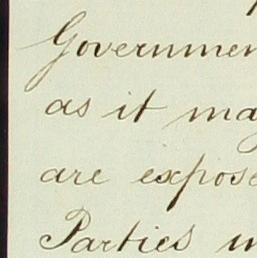 Governmen
as it may
are expose
Parties